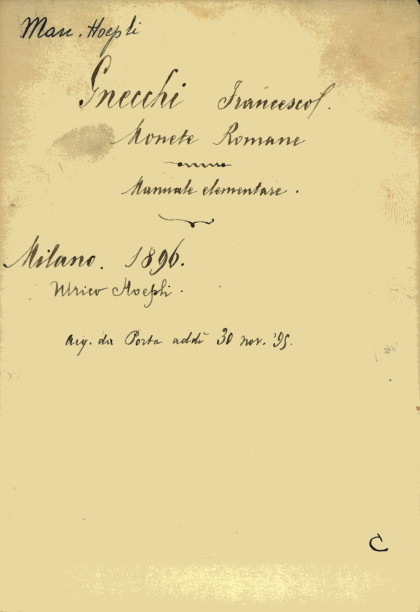 Man. Hoepli
Gnecchi Francesco.
Monete Romane
Manuale elementare.
Milano. 1896.
Ulrico Hoepli.
Acq. da Porta addì 30 nov. '95.
C